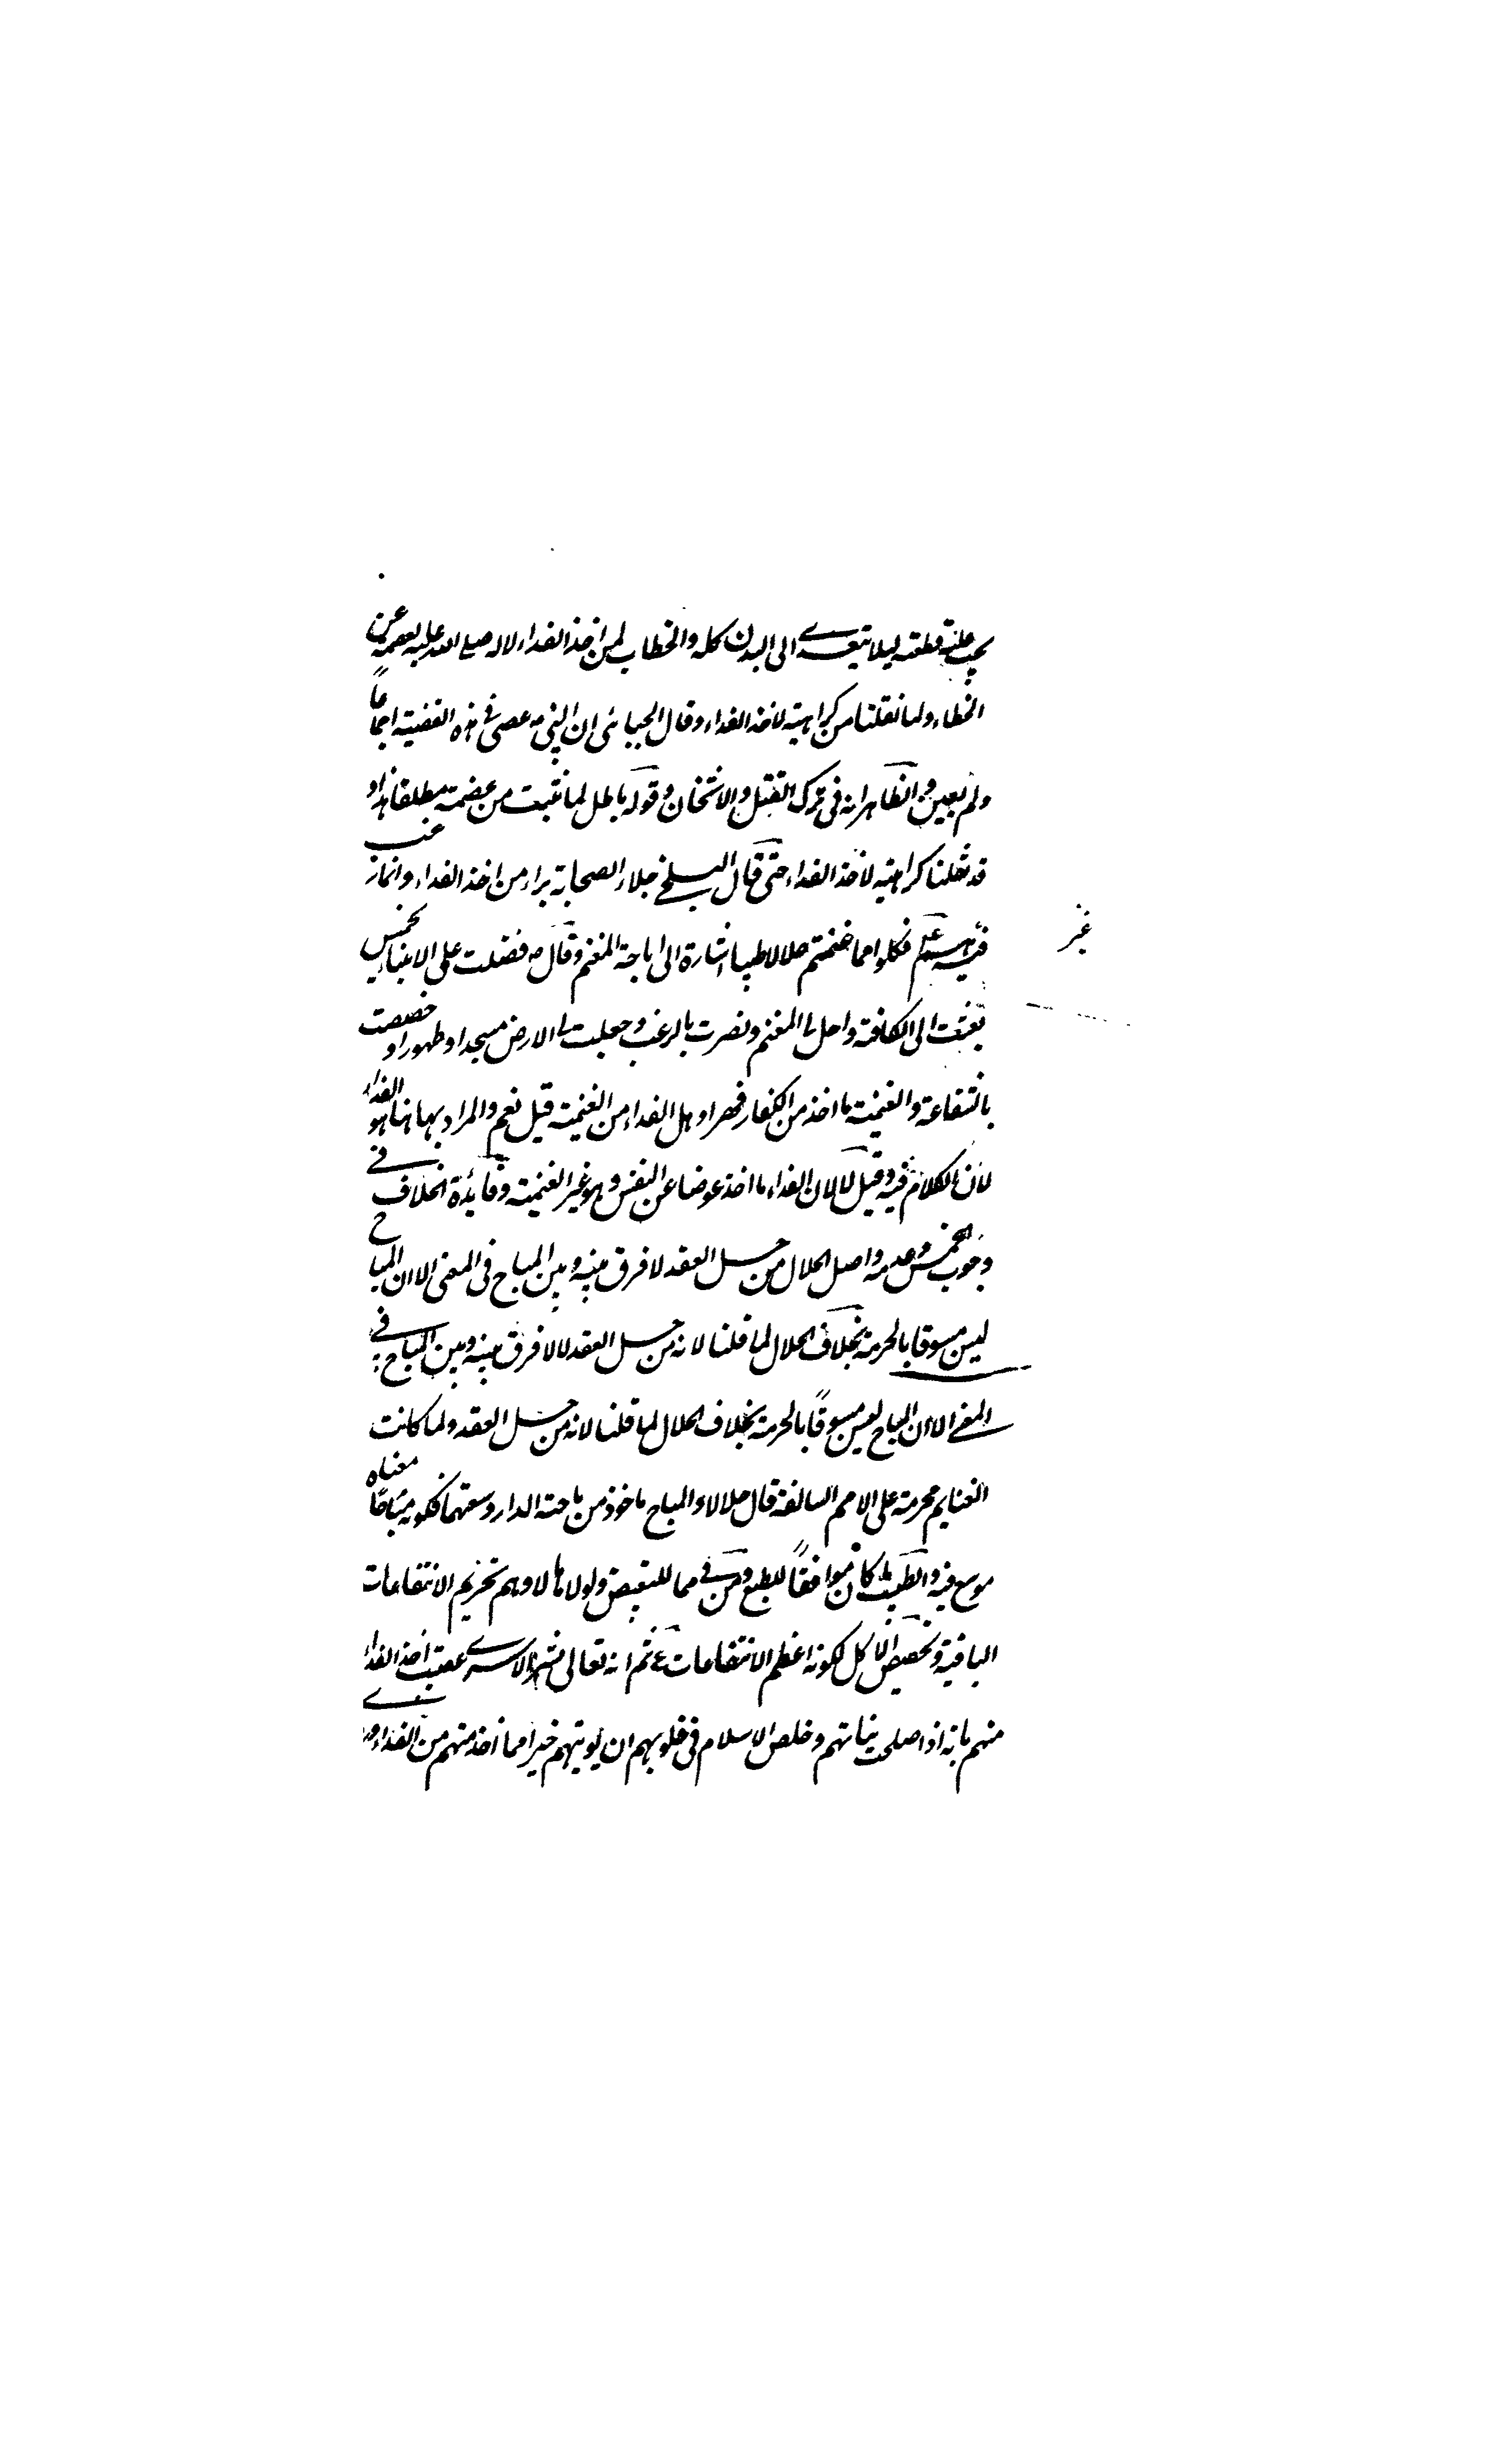 يجب عليه قطعه ليلا يتعدى الى البدن كله والخطاب لمن اخذ الفداء لا له صلى الله عليه لعصمته عن
الخطاء ولما نقلنا من كراهيته لاخذ الفداء وقال الجبائي ان النبي ص عصى في هذه القضية اجماعاً
ولم يعين والظاهر انه في ترك القتل والاثخان وقوله باطل لما ثبت من عصمته مطلقا هذا و
قد نقلنا كراهيته لاخذ الفداء حتى قال البلخي جلاء الصحابة براء من اخذ الفداء وانما رغب
غير
فيه غيرهم فكلوا مما غنمتم حلالا طيبا اشارة الى اباحة المغنم وقال ص فضلت على الانبياء بخمس
بعثت الى الكافة واحل لي المغنم ونصرت بالرعب وجعلت لي الارض مسجدا وطهورا وخصصت
بالشفاعة والغنيمة ما اخذ من الكفار قهرا وهل الفداء من الغنيمة قيل نعم والمراد بها هنا هو الفداء
لان الكلام فيه وقيل لا لان الفداء ما اخذ عوضا عن النفس وهو غير الغنيمة وفائدة الخلاف في
وجوب الخمس وعدمه واصل الحلال من حل العقد لا فرق بينه وبين المباح في المعنى الا ان المباح
ليس مسبوقا بالحرمة بخلاف الحلال لما قلنا لانه من حل العقد لا لا فرق بينه وبين المباح في
المعنى الا ان المباح ليس مسبوقاً بالحرمة بخلاف الحلال لما قلنا لانه من حل العقد ولما كانت
الغنايم محرمة على الامم السالفة قال حلالا والمباح ماخوذ من باحة الدار وسعتها فكونه مباحاً معناه
موسع فيه والطيب ما كان موافقاً للطبع ومن في مما للتبعيض ولولاها لاوهم تحريم الانتفاعات
الباقية وتخصيص الاكل لكونه اعظم الانتفاعات ثم انه تعالى بشر الاسرى عقيب اخذ الفداء
منهم بانه اذا صلحت نياتهم وخلص الاسلام في قلوبهم ان يوتيهم خيرا مما اخذ منهم من الفداء